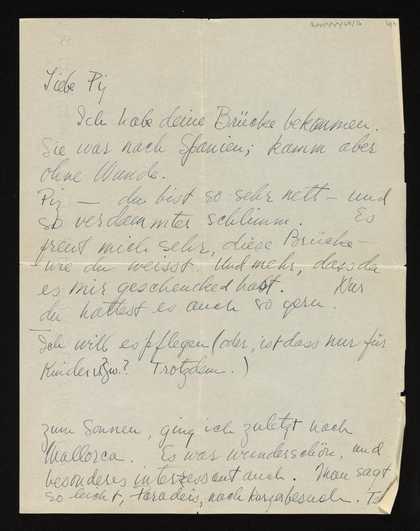 Liebe Pij
Ich habe deine Brücke bekommen.
Sie war nach Spanien; kamm aber
ohne Wunde.
Pij — du bist so sehr nett — und
so verdammter schlimm. Es
freut mich sehr, diese Brücke —
wie du weisst. Und mehr, dass du
es mir geschencked hast.
du hattest es auch so gern.
Ich will es pflegen (oder, ist dass nur für
Kinder usw.? Trotzdem.)
zum Sonnen, ging ich zuletzt nach
Mallorca. Es war wunderschön, und
besonders interessant auch. Man sagt
so leicht, Paradeis, nach kurzbesuch.